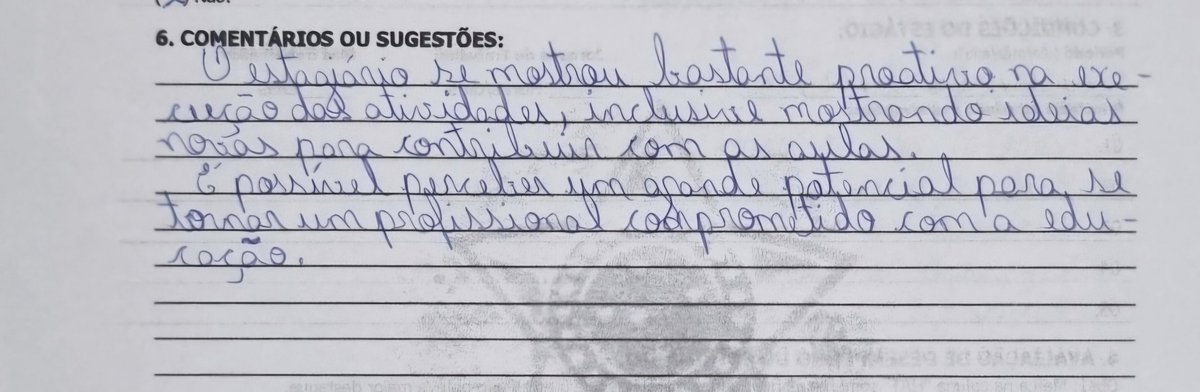 Não.
6. COMENTÁRIOS OU SUGESTÕES:
O estagiario se mostrou bastante proativo na exe-
cução das atividades, inclusive mostrando ideias
novas para contribuir com as aulas.
É possível perceber um grande potencial para se
tornar um profissional comprometido com a edu-
cação.